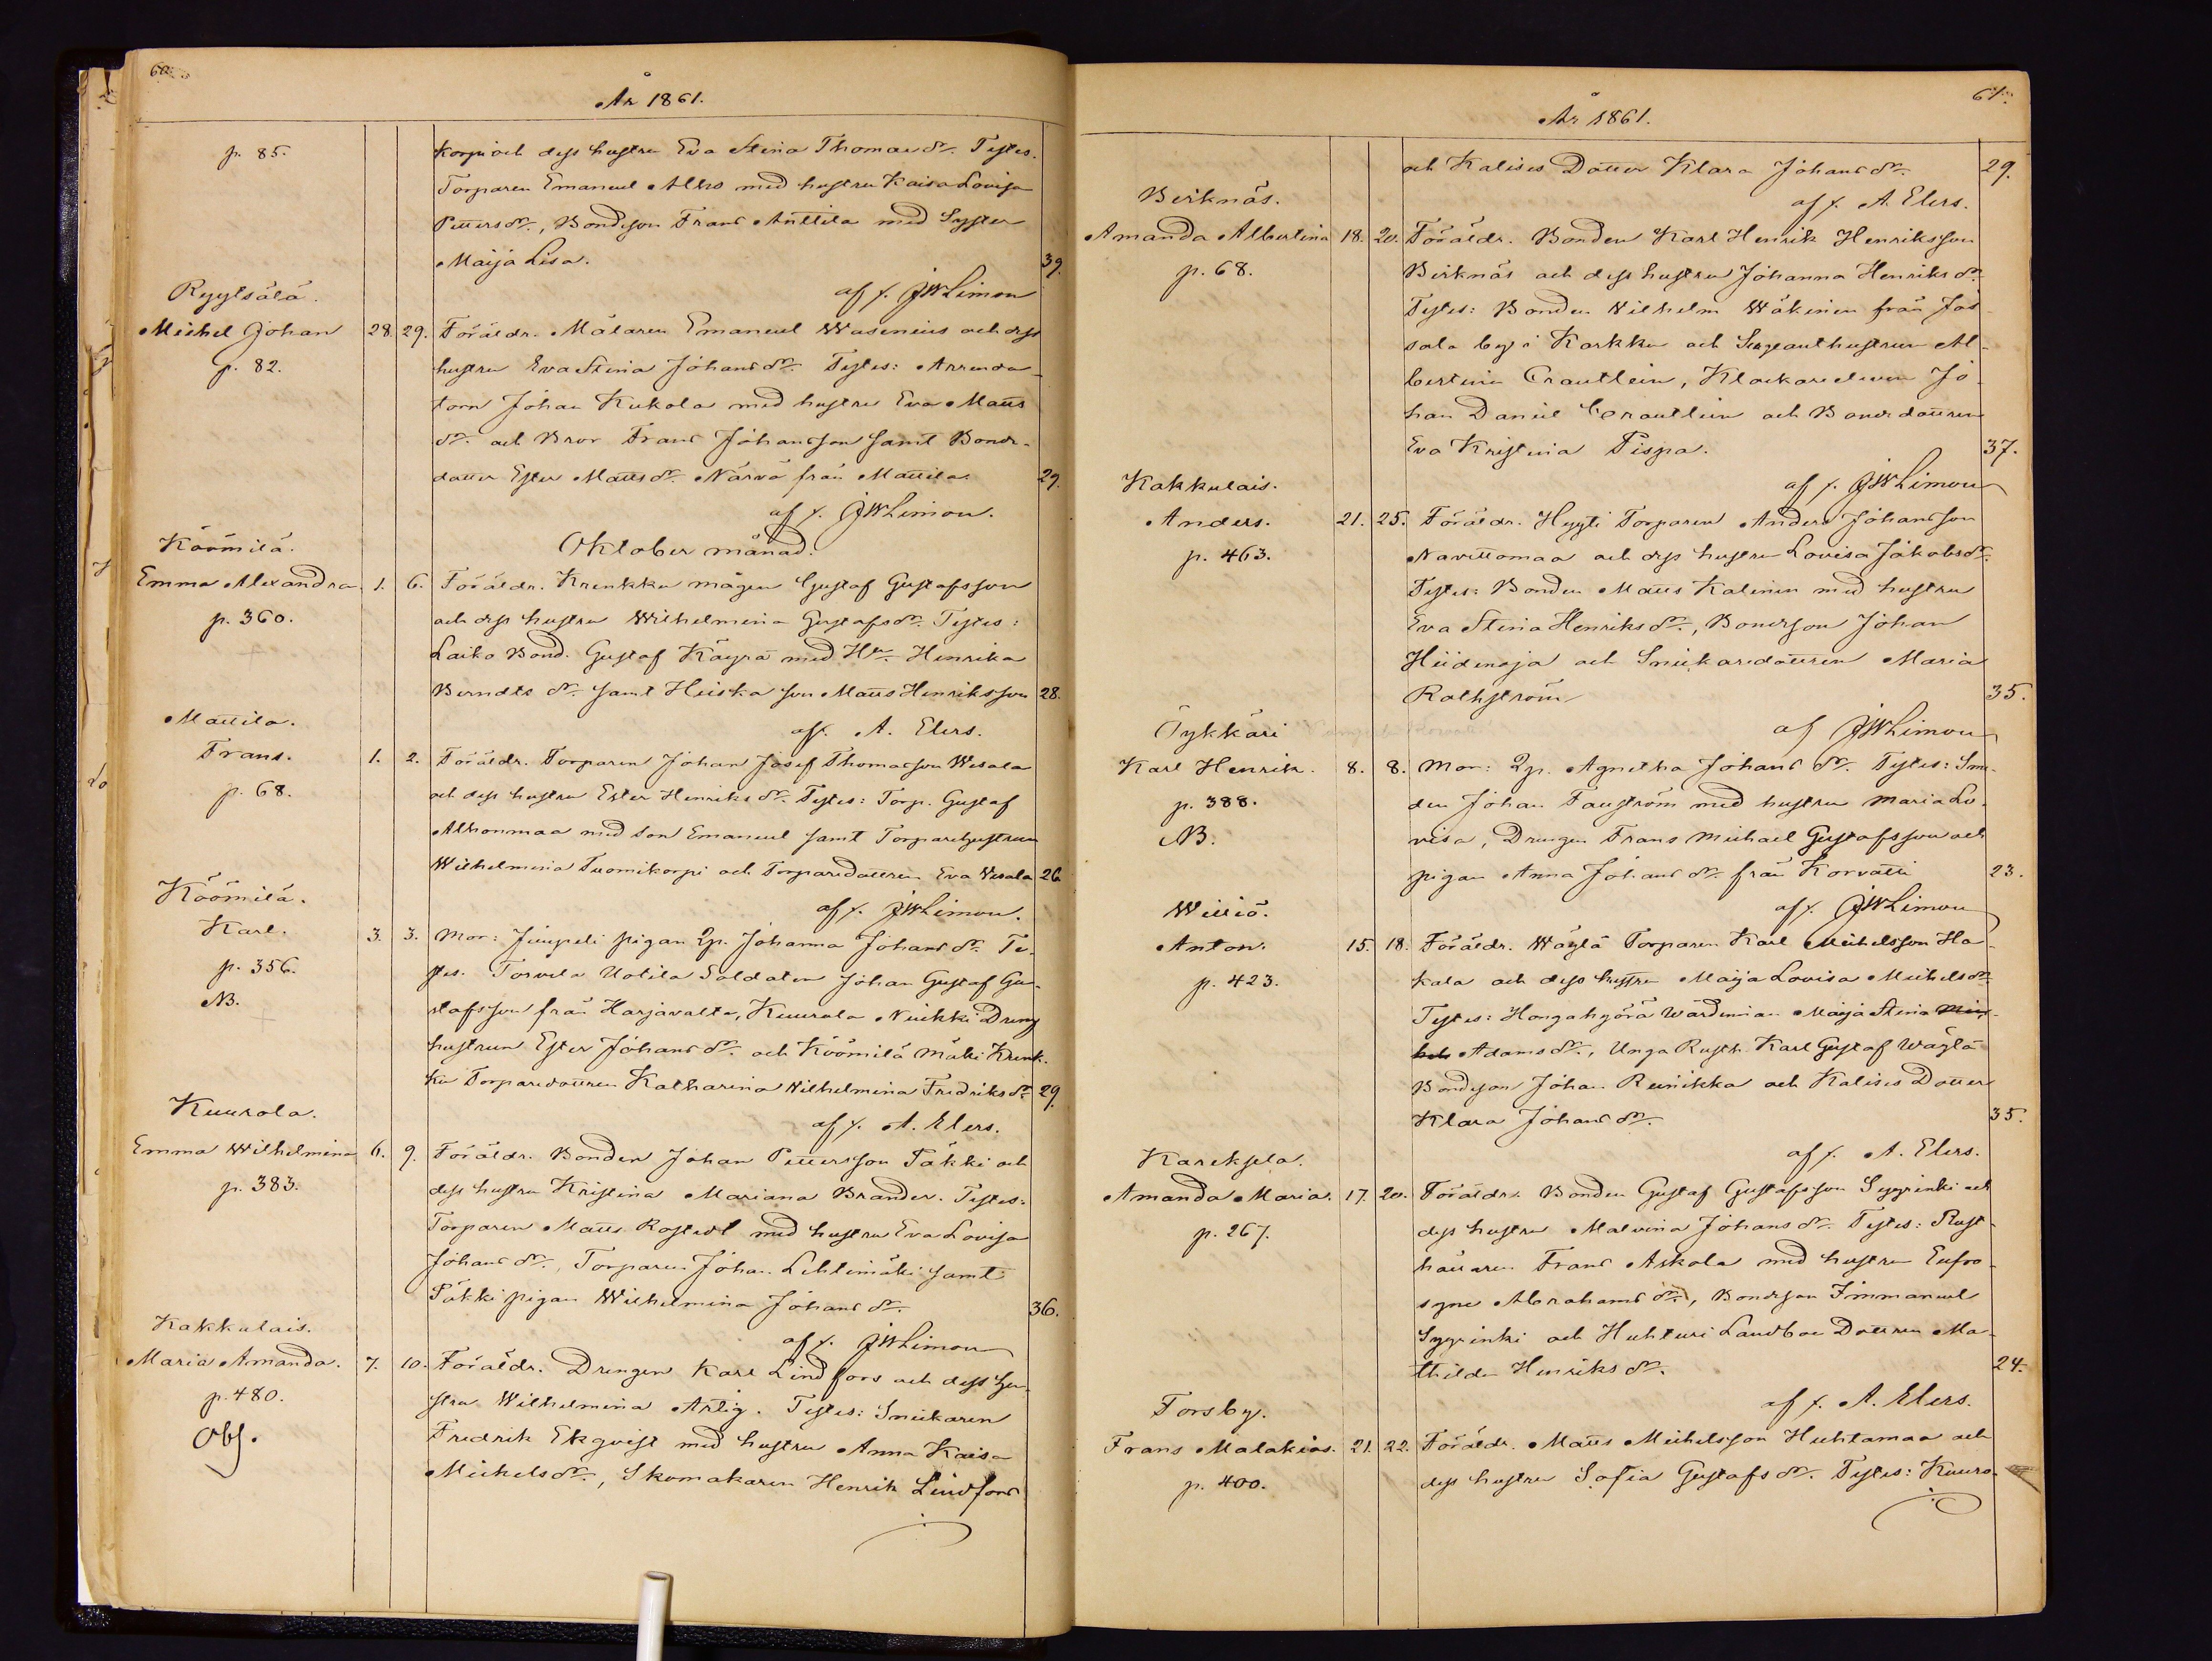 60.
År 1861.
p. 85.
korpi och dess hustru Eva Stina Thomas dr. Testes.
Torparen Emanuel Alho med hustru Kaisa Lovisa
Petters dr., Bondeson Frans Anttila med Syster
Maija Lisa. 39.
af f. JWLimon
Ryytsälä.
Michel Johan 28. 29. Föräldr. Målaren Emanuel Wasenius och dess
p. 82.
hustru Eva Stina Johans dr. Testes: Arrenda-
torn Johan Kukola med hustru Eva Matts
dr. och Bror Frans Johansson samt Bonde-
dotter Ester Matts dr. Närvä från Mattila. 29.
af f. JWLimon.
Oktober månad.
Köömilä.
Emma Alexandra. 1. 6. Föräldr. Krenkku mågen Gustaf Gustafsson
p. 360.
och dess hustru Wilhelmina Gustafs dr. Testes:
Laiko Bond. Gustaf Käyrä med Hu. Henrika
Berndts dr. samt Heiska son Matts Henriksson 28.
af f. A. Elers.
Mattila.
Frans. 1. 2. Föräldr. Torparen Johan Josef Thomasson Wesala
p. 68.
och dess hustru Ester Henriks dr. Testes: Torp. Gustaf
Alhonmaa med son Emanuel samt Torparehustrun
Wilhelmina Tuomikorpi och Torparedottren Eva Wesala 26.
af f. JWLimon.
Köömilä.
Karl. 3. 3. Mor: Juupeli pigan Qp. Johanna Johans dr. Te-
p. 356.
NB.
stes. Torvela Uotila Soldaten Johan Gustaf Gu-
stafsson från Harjavalta, Kuurola Nuikki Dreng
hustrun Ester Johans dr. och Köömilä Mäki Krenk-
ku Torparedottren Katharina Wilhelmina Fredriks dr. 29.
af f. A. Elers.
Kuurola.
Emma Wilhelmina 6. 9. Föräldr. Bonden Johan Pettersson Päkki och
p. 383.
dess hustru Kristina Mariana Brander. Testes:
Torparen Matts Rostedt med hustru Eva Lovisa
Johans dr., Torparen Johan Lehtimäki samt
Päkki pigan Wilhelmina Johans dr. 36.
af f. JWLimon
Kakkulais.
Maria Amanda. 7. 10. Föräldr. Drengen Karl Lindfors och dess hu-
p. 480.
Obs.
stru Wilhelmina Artig. Testes: Snickaren
Fredrik Ekqvist med hustru Anna Kaisa
Michels dr., Skomakaren Henrik Lindfors
61.
År 1861.
och Kalisis Dotter Klara Johans dr. 29.
af f. A. Elers.
Birknäs.
Amanda Albertina 18. 20. Föräldr. Bonden Karl Henrik Henriksson
p. 68.
Birknäs och dess hustru Johanna Henriks dr.
Testes: Bonden Wilhelm Wäkinen från Jos
sala by i Karkku och Sergeanthustrun Al-
bertina Crautlein, Klockareeleven Jo-
han Daniel Crautlein och Bondedottren
Eva Kristina Pispa. 37.
af f. JWLimon
Kakkulais.
Anders. 21. 25. Föräldr. Hyyti Torparen Anders Johansson
p. 463.
Navettomaa och dess hustru Lovisa Jakobs dr.
Testes: Bonden Matts Kalinen med hustru
Eva Stina Henriks dr., Bondeson Johan
Hiidenoja och Snickaredottren Maria
Rathström 35.
af JWLimon
Öykkäri
Karl Henrik. 8. 8. Mor: Qp. Agnetha Johans dr. Testes: Sme-
p. 388.
NB.
den Johan Fauström med hustru Maria Lo-
visa, Drengen Frans Michael Gustafsson och
pigan Anna Johans dr. från Korvatti 23.
af f. JWLimon
Williö.
Anton. 15. 18. Föräldr. Wäylä Torparen Karl Michelsson Ha-
p. 423.
kala och dess hustru Maija Lovisa Michels dr.
Testes: Hongahyörä Wärdinnan Maija Stina Mic-
hels Adams dr., Unga Rusth. Karl Gustaf Wäylä
Bondeson Johan Reinikka och Kalisis Dotter
Klara Johans dr. 35.
af f. A. Elers.
Kareksela.
Amanda Maria. 17. 20. Föräldr. Bonden Gustaf Gustafsson Syyrinki och
p. 267.
dess hustru Malvina Johans dr. Testes: Rust-
hållaren Frans Askola med hustru Eufro-
syne Abrahams dr., Bondeson Immanuel
Syyrinki och Huhturi Landboe Dottren Ma-
thilda Henriks dr. 24.
af f. A. Elers.
Forsby.
Frans Malakias. 21. 22. Föräldr. Matts Michelsson Huhtamaa och
p. 400.
dess hustru Sofia Gustafs dr. Testes: Kuuro-